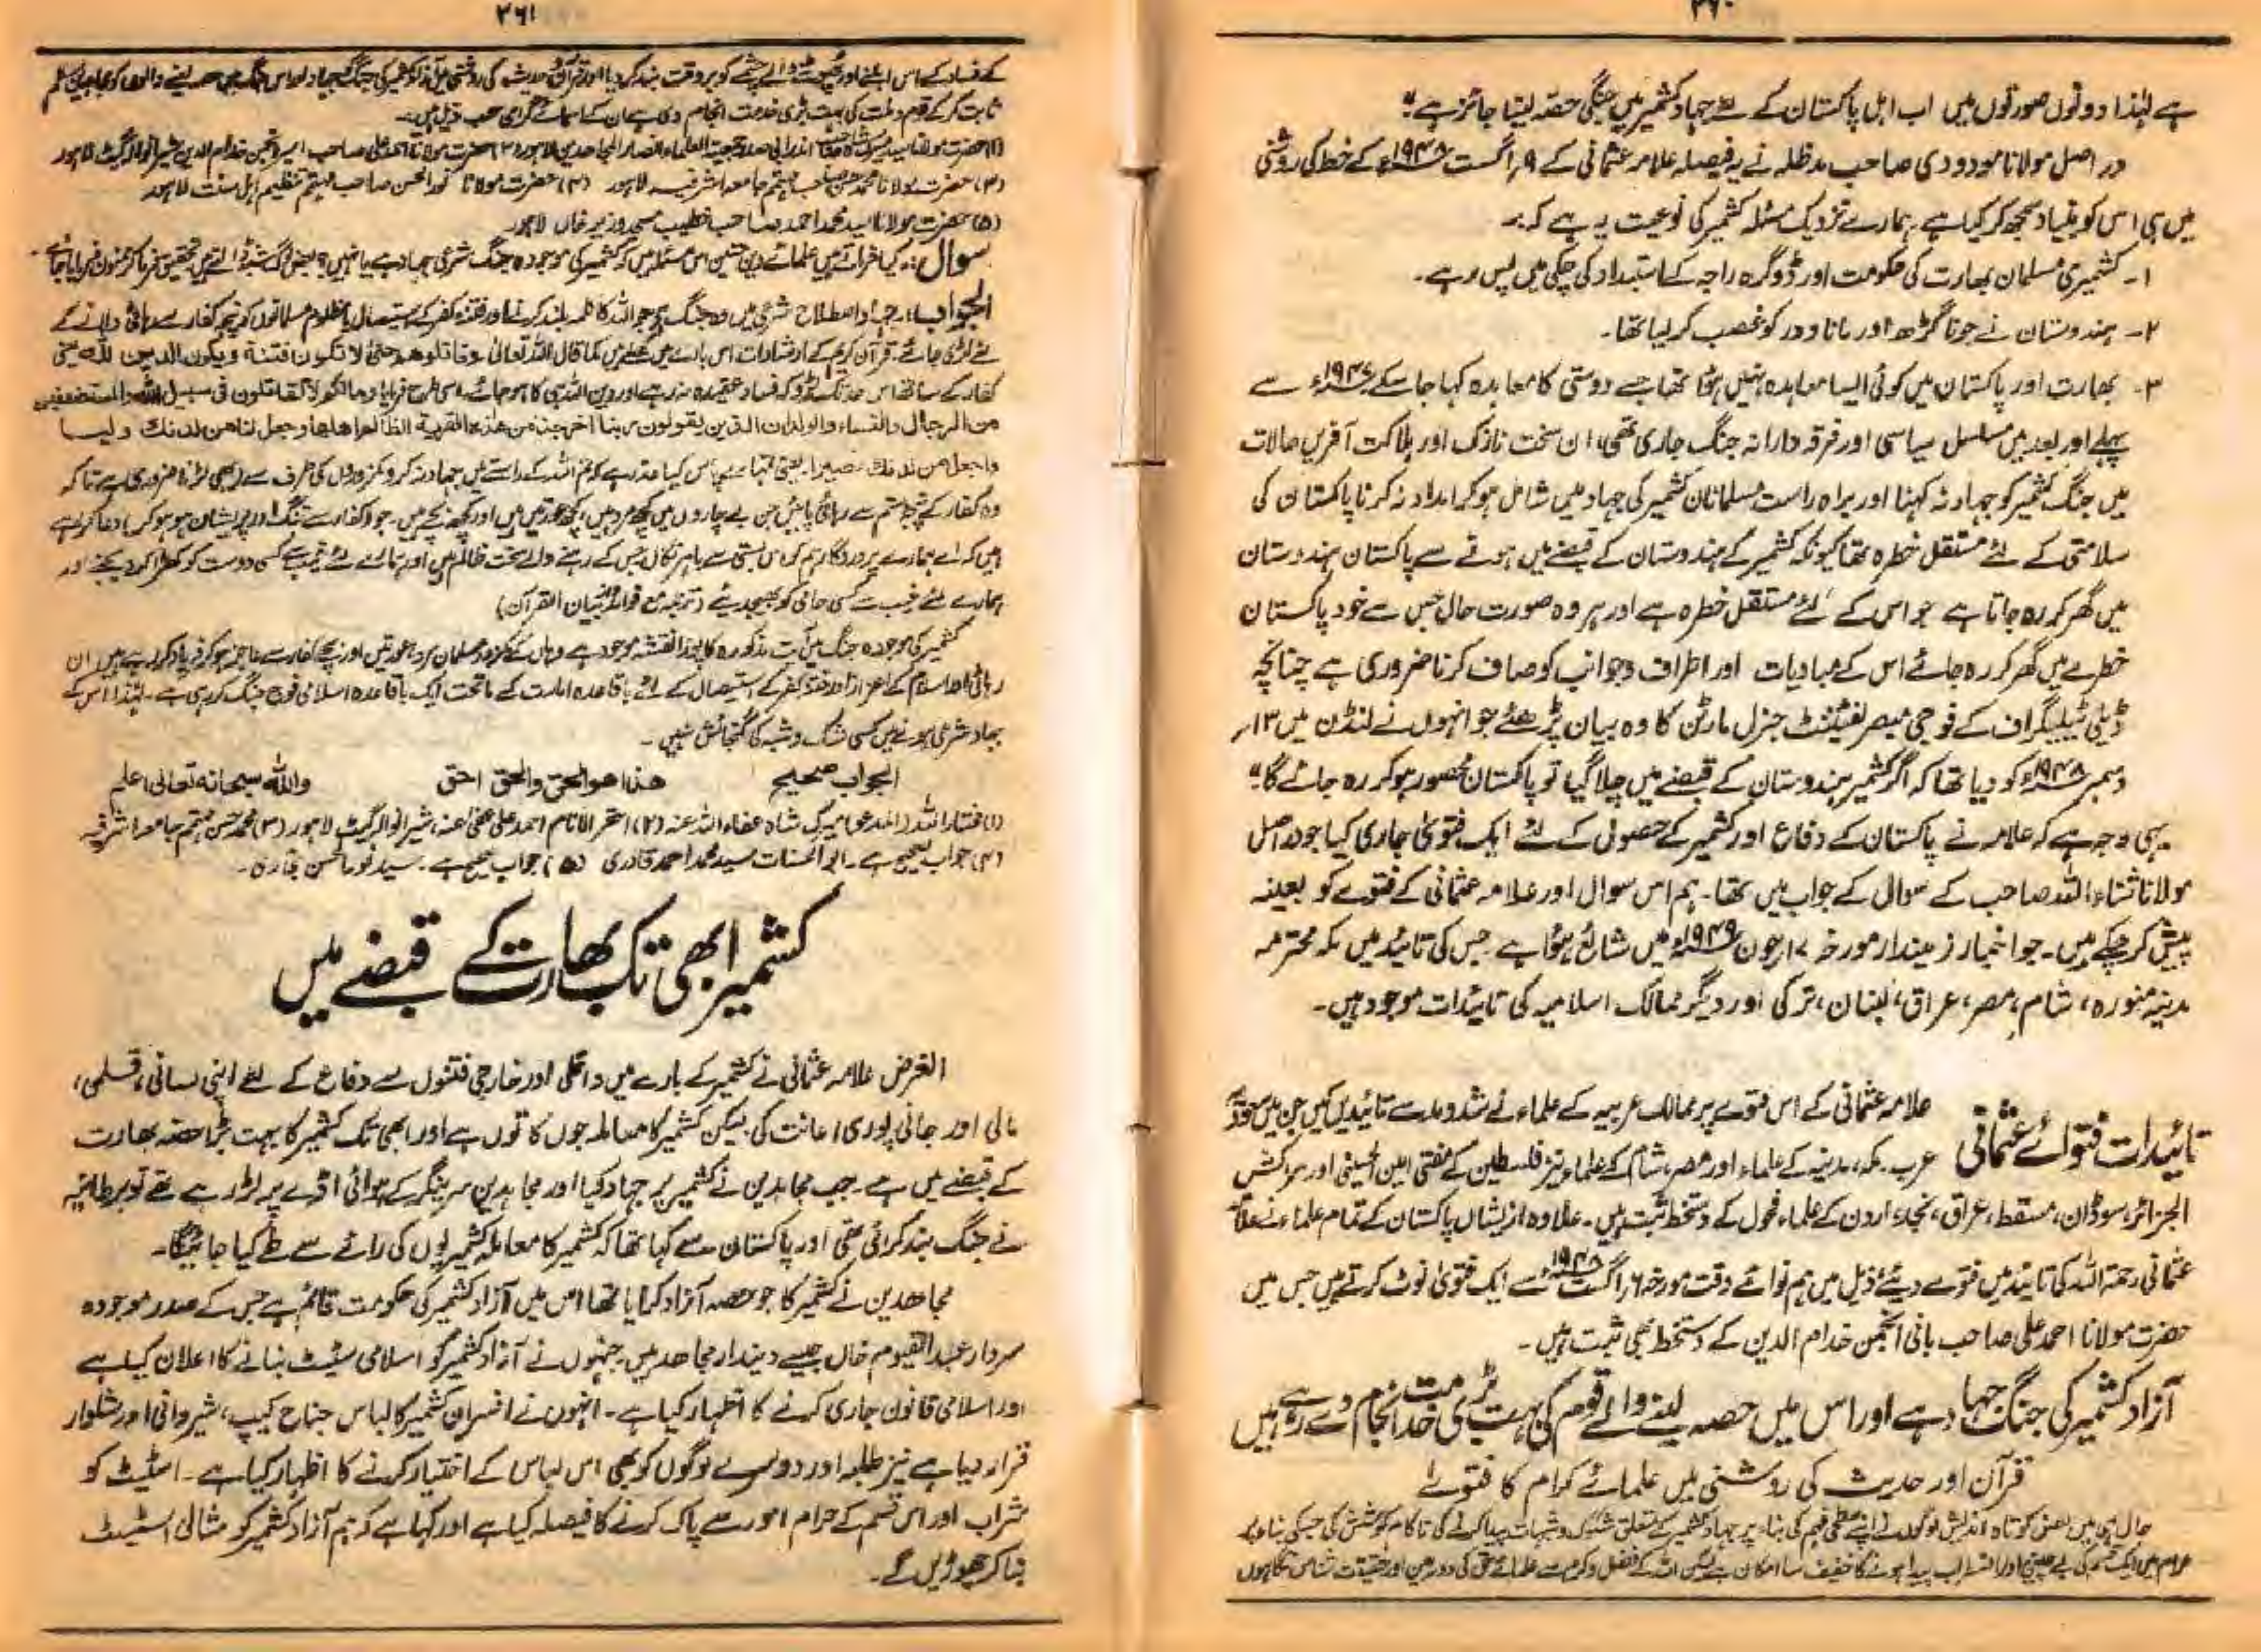 ۳۶۰
ہے لہٰذا دونوں صورتوں میں اب اہل پاکستان کے لئے جہاد کشمیر میں جنگی حصہ لینا جائز ہے"
در اصل مولانا مودودی صاحب مدظلہ نے یہ فیصلہ علامہ عثمانی کے ۹ر اگست ۱۹۴۸ء کے خط کی روشنی
میں ہی اس کو بنیاد سمجھ کر کیا ہے ہمارے نزدیک مسئلہ کشمیر کی نوعیت یہ ہے کہ:۔
۱۔ کشمیری مسلمان بھارت کی حکومت اور ڈوگرہ راجہ کے استبداد کی چکی میں پس رہے۔
۲۔ ہندوستان نے جوناگڑھ اور مانا ودر کو غصب کر لیا تھا۔
۳۔ بھارت اور پاکستان میں کوئی ایسا معاہدہ نہیں ہوا تھا جسے دوستی کا معاہدہ کہا جا سکے ۱۹۴۷ء سے
پہلے اور بعد میں مسلسل سیاسی اور فرقہ دارانہ جنگ جاری تھی، ان سخت نازک اور ہلاکت آفریں حالات
میں جنگ کشمیر کو جہاد نہ کہنا اور براہ راست مسلمانان کشمیر کی جہاد میں شامل ہو کر امداد نہ کرنا پاکستان کی
سلامتی کے لئے مستقل خطرہ تھا کیونکہ کشمیر کے ہندوستان کے قبضے میں ہونے سے پاکستان ہندوستان
میں گھر کر رہ جاتا ہے جو اس کے لئے مستقل خطرہ ہے اور ہر وہ صورت حال جس سے خود پاکستان
خطرے میں گھر کر رہ جائے اس کے مبادیات اور اطراف و جوانب کو صاف کرنا ضروری ہے چنانچہ
ڈیلی ٹیلیگراف کے فوجی مبصر لفٹننٹ جنرل مارٹن کا وہ بیان پڑھئے جو انہوں نے لنڈن میں ۱۳ر
دسمبر ۱۹۴۸ء کو دیا تھا کہ اگر کشمیر ہندوستان کے قبضے میں چلا گیا تو پاکستان محصور ہو کر رہ جائے گا"
یہی وجہ ہے کہ علامہ نے پاکستان کے دفاع اور کشمیر کے حصول کے لئے ایک فتویٰ جاری کیا جو در اصل
مولانا ثناء اللہ صاحب کے سوال کے جواب میں تھا۔ ہم اس سوال اور علامہ عثمانی کے فتوے کو بعینہ
پیش کر چکے ہیں۔ جو اخبار زمیندار مورخہ ۱۷ جون ۱۹۴۹ء میں شائع ہوا ہے جس کی تائید میں مکہ محترمہ
مدینہ منورہ، شام، مصر، عراق، لبنان، ترکی اور دیگر ممالک اسلامیہ کی تائیدات موجود ہیں۔
تائیدات فتوائے عثمانی
علامہ عثمانی کے اس فتوے پر ممالک عربیہ کے علماء نے شد و مد سے تائیدیں کیں جن میں سعودی
عرب مکہ، مدینہ کے علماء اور مصر، شام کے علماء نیز فلسطین کے مفتی امین الحسینی اور مراکش
الجزائر، سوڈان، مسقط، عراق، نجد، اردن کے علماء فحول کے دستخط ثبت ہیں۔ علاوہ ازیشاں پاکستان کے تمام علماء نے علامہ
عثمانی رحمۃ اللہ کی تائید میں فتوے دیئے ذیل میں ہم نوائے وقت مورخہ ۶ر اگست ۱۹۴۸ء سے ایک فتویٰ نوٹ کرتے ہیں جس میں
حضرت مولانا احمد علی صاحب بانی انجمن خدام الدین کے دستخط بھی ثبت ہیں۔
آزاد کشمیر کی جنگ جہاد ہے اور اس میں حصہ لینے والے قوم کی بہت بڑی خدمت انجام دے رہے ہیں
قرآن اور حدیث کی روشنی میں علمائے کرام کا فتوے
حال ہی میں بعض کوتاہ اندیش لوگوں نے اپنے سطحی فہم کی بناء پر جہاد کشمیر کے متعلق شکوک و شبہات پیدا کرنے کی ناکام کوشش کی جسکی بناء پر
عوام میں ایک قسم کی بے چینی اور اضطراب پیدا ہونے کا خفیف سا امکان ہے لیکن اللہ کے فضل و کرم سے علمائے حق کی دوربین اور حقیقت شناس نگاہوں
۳۶۱
کے فساد کے اس ابلتے اور پھوٹنے والے چشمے کو بروقت بند کر دیا اور قرآن و حدیث کی روشنی میں آزاد کشمیر کی جنگ کو جہاد اور اس جنگ میں حصہ لینے والوں کو مجاہدین
ثابت کر کے قوم و ملت کی بہت بڑی خدمت انجام دی ہے ان کے اسمائے گرامی حسب ذیل ہیں۔
(۱) حضرت مولانا سید میرک شاہ صاحب اندرابی صدر جمعیت العلماء انصار المجاہدین لاہور (۲) حضرت مولانا احمد علی صاحب امیر انجمن خدام الدین شیرانوالہ گیٹ لاہور
(۳) حضرت مولانا محمد حسن صاحب مہتمم جامعہ اشرفیہ لاہور (۴) حضرت مولانا نور الحسن صاحب مہتمم تنظیم اہل سنت لاہور
(۵) حضرت مولانا سید محمد احمد صاحب خطیب مسجد وزیر خاں لاہور۔
سوال:۔ کیا فرماتے ہیں علمائے دین متین اس مسئلہ میں کہ کشمیر کی موجودہ جنگ شرعی جہاد ہے یا نہیں؟ بعض لوگ شبہ ڈالتے ہیں تحقیق سے فرما کر ممنون فرمایا جائے۔
الجواب:۔ جہاد اصطلاح شرع میں وہ جنگ ہے جو اللہ کا کلمہ بلند کرنے اور فتنہ کفر کے استیصال یا مظلوم مسلمانوں کو پنجہ کفار سے رہائی دلانے کے
لئے لڑی جائے۔ قرآن کریم کے ارشادات اس بارے میں کما قال اللہ تعالیٰ وقاتلوھم حتیٰ لا تکون فتنة ویکون الدین للہ یعنی
کفار کے ساتھ اس حد تک لڑو کہ فساد عقیدہ نہ رہے اور دین اللہ ہی کا ہو جائے، اسی طرح فرمایا ومالکم لا تقاتلون فی سبیل اللہ والمستضعفین
من الرجال والنساء والولدان الذین یقولون ربنا اخرجنا من ھذہ القریة الظالم اھلھا وجعل لنا من لدنک ولیا
واجعل من لدنک نصیرا۔ یعنی تمہارے پاس کیا عذر ہے کہ تم اللہ کے راستے میں جہاد نہ کرو کمزوروں کی طرف سے بھی لڑنا ضروری ہے تاکہ
وہ کفار کے پنجہ ستم سے رہائی پائیں جن بے چاروں میں کچھ مرد ہیں، کچھ عورتیں ہیں اور کچھ بچے ہیں۔ جو کفار سے تنگ اور پریشان ہو ہو کر دعا کر رہے
ہیں کہ اے ہمارے پروردگار ہم کو اس بستی سے باہر نکال جس کے رہنے والے سخت ظالم ہیں اور ہمارے لئے غیب سے کسی دوست کو کھڑا کر دیجئے اور
ہمارے لئے غیب سے کسی حامی کو بھیجدیئے (ترجمہ مع فوائد بیان القرآن)
کشمیر کی موجودہ جنگ میں آیت مذکورہ کا پورا نقشہ موجود ہے وہاں کے کمزور مسلمان مرد، عورتیں اور بچے کفار سے عاجز ہو کر فریاد کر رہے ہیں ان
رہائی اور اسلام کے اعزاز اور فتنہ کفر کے استیصال کے لئے باقاعدہ امارت کے ماتحت ایک باقاعدہ اسلامی فوج جنگ کر رہی ہے۔ لہٰذا اس کے
جہاد شرعی ہونے میں کسی شک و شبہ کا گنجائش نہیں۔
الجواب صحیح ھذا ھو الحق والحق احق واللہ سبحانہ تعالیٰ اعلم
(۱) میرک شاہ عفاء اللہ عنہ (۲) احقر الانام احمد علی عفی عنہ، شیرانوالہ گیٹ لاہور (۳) محمد حسن مہتمم جامعہ اشرفیہ
(۴) جواب صحیح ہے۔ ابو الحسنات سید محمد احمد قادری (۵) جواب صحیح ہے۔ سید نور الحسن بخاری۔
کشمیر ابھی تک بھارت کے قبضے میں
الغرض علامہ عثمانی نے کشمیر کے بارے میں داخلی اور خارجی فتنوں سے دفاع کے لئے اپنی لسانی، قلمی،
مالی اور جانی پوری اعانت کی لیکن کشمیر کا معاملہ جوں کا توں ہے اور ابھی تک کشمیر کا بہت بڑا حصہ بھارت
کے قبضے میں ہے۔ جب مجاہدین نے کشمیر پر جہاد کیا اور مجاہدین سرینگر کے ہوائی اڈے پر لڑ رہے تھے تو برطانیہ
نے جنگ بند کرائی تھی اور پاکستان سے کہا تھا کہ کشمیر کا معاملہ کشمیریوں کی رائے سے طے کیا جائیگا۔
مجاھدین نے کشمیر کا جو حصہ آزاد کرایا تھا اس میں آزاد کشمیر کی حکومت قائم ہے جس کے صدر موجودہ
سردار عبد القیوم خاں جیسے دیندار مجاھد ہیں۔ جنہوں نے آزاد کشمیر کو اسلامی سٹیٹ بنانے کا اعلان کیا ہے
اور اسلامی قانون جاری کرنے کا اظہار کیا ہے۔ انہوں نے افسران کشمیر کا لباس جناح کیپ، شیروانی اور شلوار
قرار دیا ہے نیز طلبہ اور دوسرے لوگوں کو بھی اس لباس کے اختیار کرنے کا اظہار کیا ہے۔ اسٹیٹ کو
شراب اور اس قسم کے حرام امور سے پاک کرنے کا فیصلہ کیا ہے اور کہا ہے کہ ہم آزاد کشمیر کو مثالی اسٹیٹ
بنا کر چھوڑیں گے۔